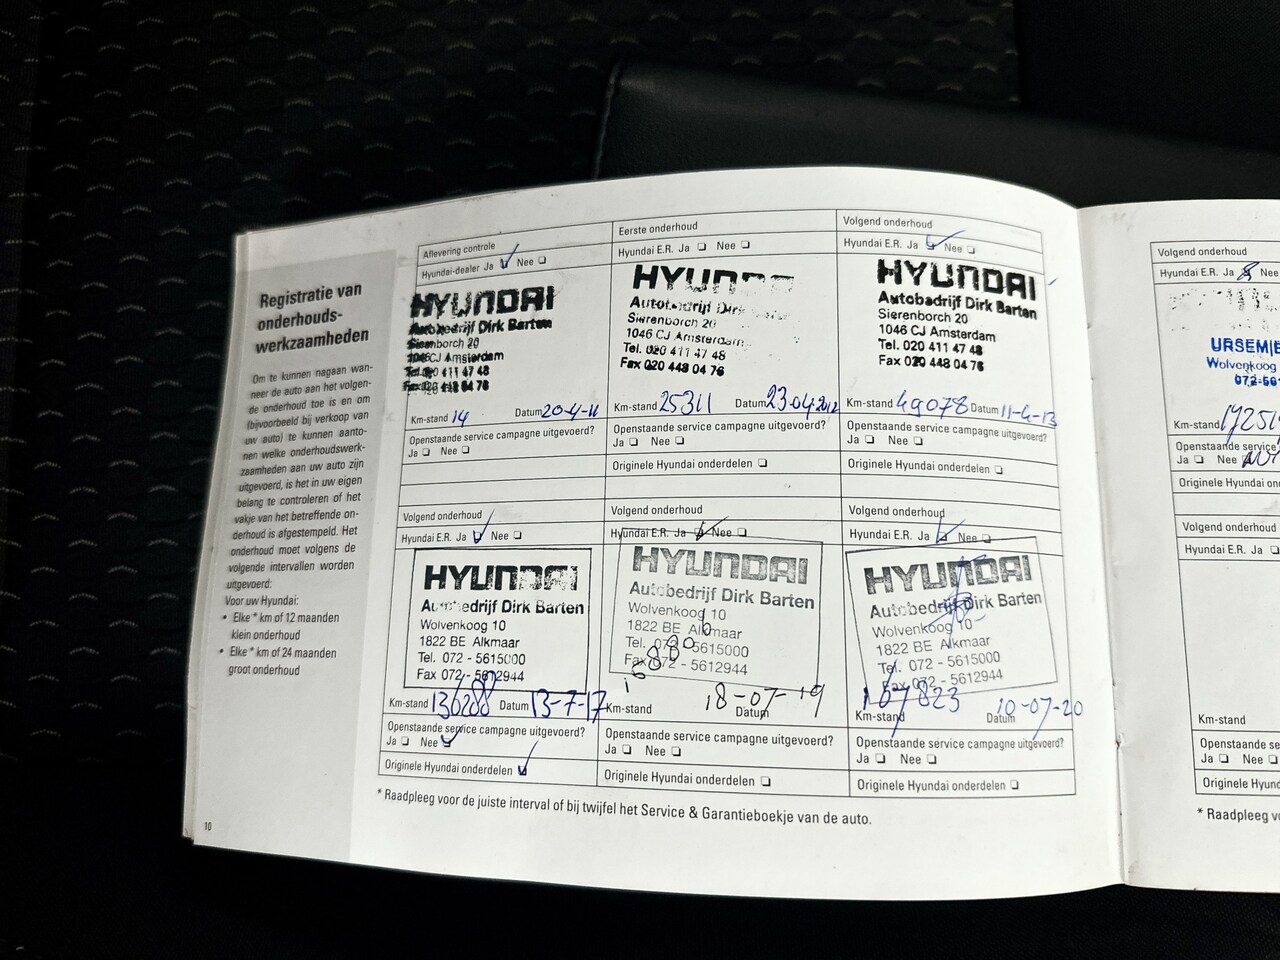 Registratie van
onderhouds-
werkzaamheden
Om te kunnen nagaan wan-
neer de auto aan het volgen-
de onderhoud toe is en om
(bijvoorbeeld bij verkoop van
uw auto) te kunnen aanto-
nen welke onderhoudswerk-
zaamheden aan uw auto zijn
uitgevoerd, is het in uw eigen
belang te controleren of het
vakje van het betreffende on-
derhoud is afgestempeld. Het
onderhoud moet volgens de
volgende intervallen worden
uitgevoerd:
Voor uw Hyundai:
• Elke * km of 12 maanden
klein onderhoud
• Elke * km of 24 maanden
groot onderhoud
10
Aflevering controle
Hyundai-dealer Ja Nee
HYUNDAI
Autobedrijf Dirk Barten
Sierenborch 20
1046 CJ Amsterdam
Tel. 020 411 47 48
Fax 020 448 04 76
Km-stand 14 Datum 20-4-11
Openstaande service campagne uitgevoerd?
Ja Nee
Eerste onderhoud
Hyundai E.R. Ja Nee
HYUNDAI
Autobedrijf Dirk
Sierenborch 20
1046 CJ Amsterdam
Tel. 020 411 47 48
Fax 020 448 04 76
Km-stand 25311 Datum 23-04-2012
Openstaande service campagne uitgevoerd?
Ja Nee
Originele Hyundai onderdelen
Volgend onderhoud
Hyundai E.R. Ja Nee
HYUNDAI
Autobedrijf Dirk Barten
Sierenborch 20
1046 CJ Amsterdam
Tel. 020 411 47 48
Fax 020 448 04 76
Km-stand 49078 Datum 11-4-13
Openstaande service campagne uitgevoerd?
Ja Nee
Originele Hyundai onderdelen
Volgend onderhoud
Hyundai E.R. Ja Nee
HYUNDAI
Autobedrijf Dirk Barten
Wolvenkoog 10
1822 BE Alkmaar
Tel. 072 - 5615000
Fax 072 - 5612944
Km-stand 136288 Datum 13-7-17
Openstaande service campagne uitgevoerd?
Ja Nee
Originele Hyundai onderdelen
Volgend onderhoud
Hyundai E.R. Ja Nee
HYUNDAI
Autobedrijf Dirk Barten
Wolvenkoog 10
1822 BE Alkmaar
Tel. 072 - 5615000
Fax 072 - 5612944
Km-stand Datum 18-07-19
Openstaande service campagne uitgevoerd?
Ja Nee
Originele Hyundai onderdelen
Volgend onderhoud
Hyundai E.R. Ja Nee
HYUNDAI
Autobedrijf Dirk Barten
Wolvenkoog 10
1822 BE Alkmaar
Tel. 072 - 5615000
Fax 072 - 5612944
Km-stand 167823 Datum 10-07-20
Openstaande service campagne uitgevoerd?
Ja Nee
Originele Hyundai onderdelen
* Raadpleeg voor de juiste interval of bij twijfel het Service & Garantieboekje van de auto.
Volgend onderhoud
Hyundai E.R. Ja Nee
URSEM
Wolvenkoog
Km-stand
Openstaande service
Ja Nee
Originele Hyundai
Volgend onderhoud
Hyundai E.R. Ja
Km-stand
Openstaande
Ja Nee
Originele Hyundai
* Raadpleeg